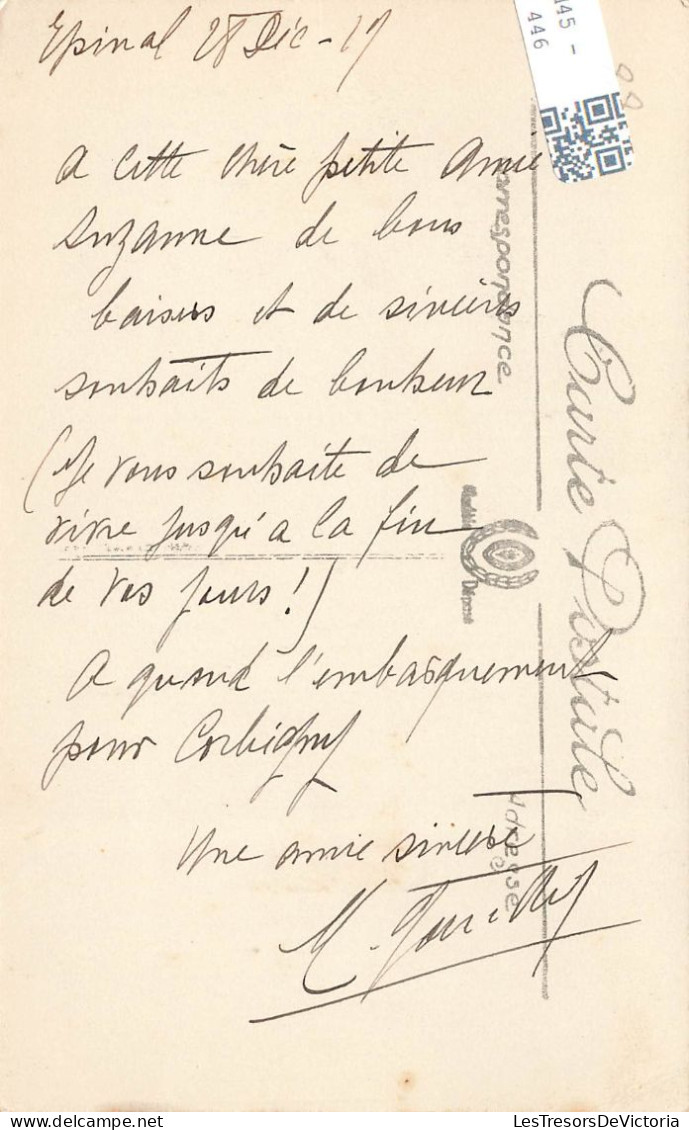 Epinal 28 Déc - 17
A cette chère petite Amie
Suzanne de bons
baisers et de sincères
souhaits de bonheur
(Je vous souhaite de
vivre jusqu'a la fin
de vos jours !)
A quand l'embarquement
pour Corbigny
Une amie sincère
M.
Carte Postale
Correspondance
Modèle Déposé
Adresse
A45 -
446
LesTresorsDeVictoria.Delcampe.net